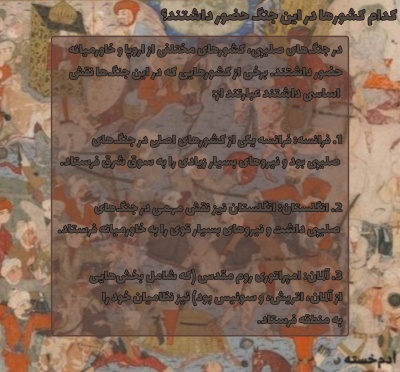 کدام کشورها در این جنگ حضور داشتند؟
در جنگ‌های صلیبی، کشورهای مختلفی از اروپا و خاورمیانه
حضور داشتند. برخی از کشورهایی که در این جنگ‌ها نقش
اساسی داشتند عبارتند از:
1. فرانسه: فرانسه یکی از کشورهای اصلی در جنگ‌های
صلیبی بود و نیروهای بسیار زیادی را به سوی شرق فرستاد.
2. انگلستان: انگلستان نیز نقش مهمی در جنگ‌های
صلیبی داشت و نیروهای بسیار قوی را به خاورمیانه فرستاد.
3. آلمان: امپراتوری روم مقدس (که شامل بخش‌هایی
از آلمان، اتریش، و سوئیس بود) نیز نظامیان خود را
به منطقه فرستاد.
آدم‌خسته